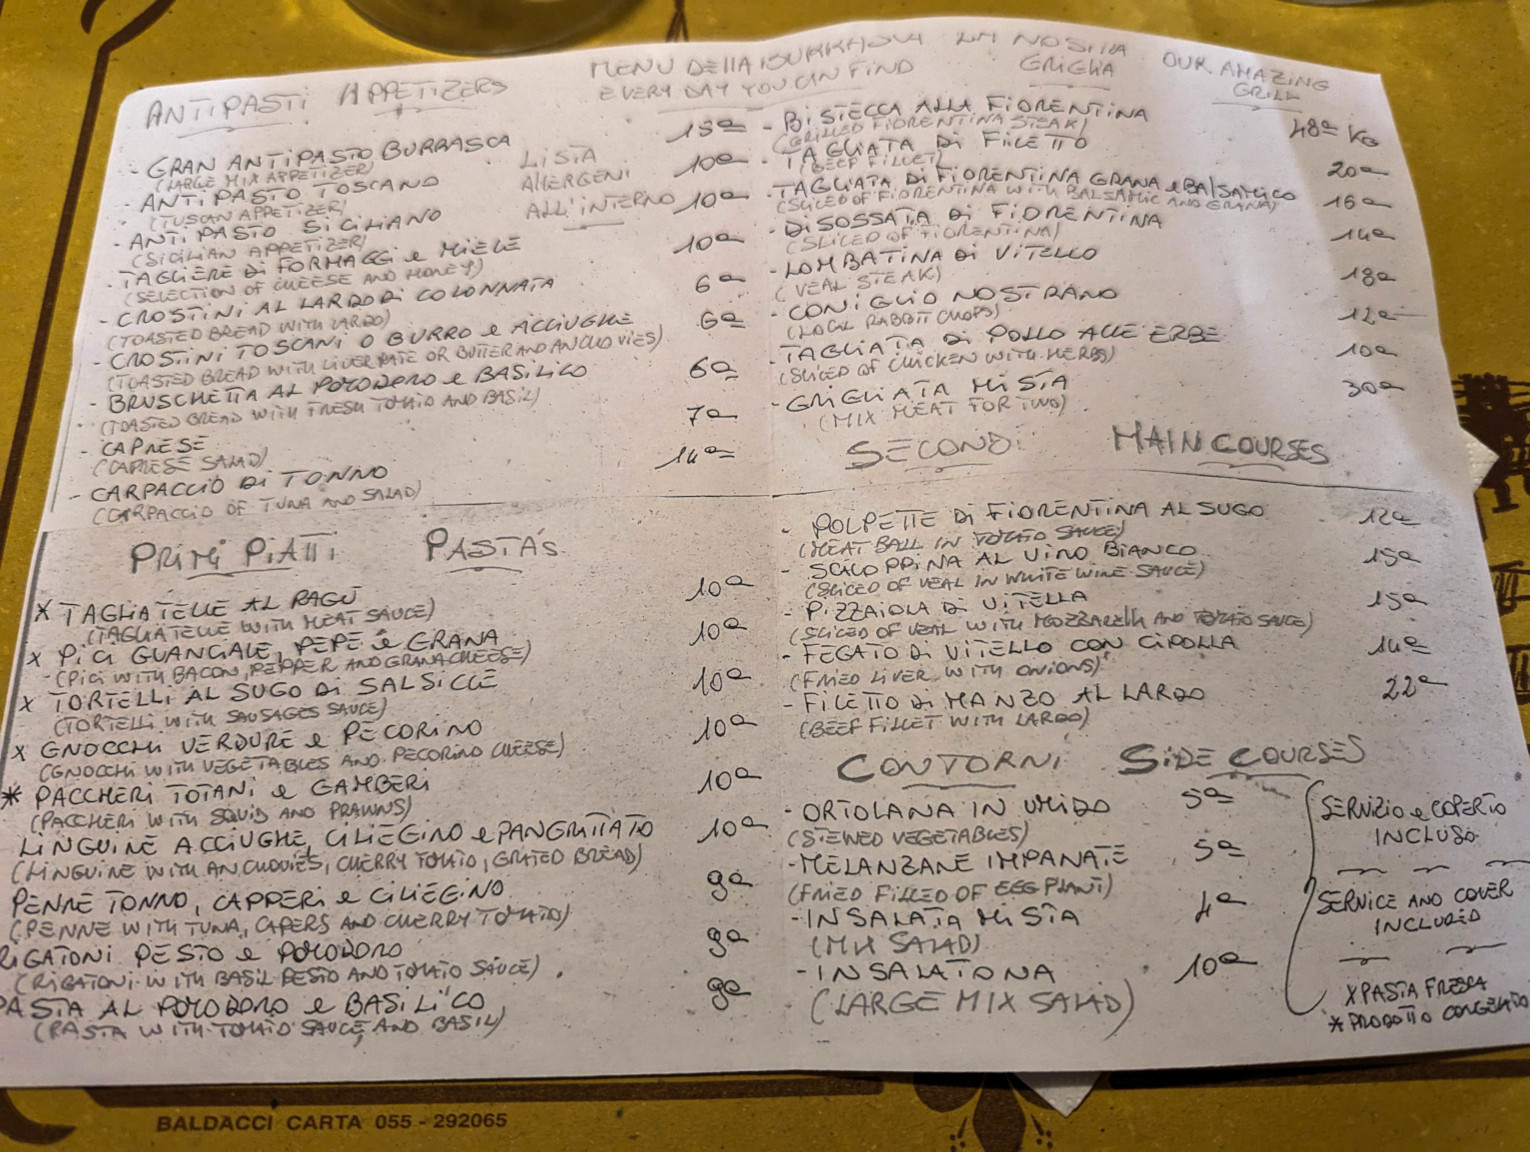 ANTIPASTI APPETIZERS
- GRAN ANTIPASTO BURRASCA 15=
(LARGE MIX APPETIZER)
- ANTIPASTO TOSCANO 10=
(TUSCAN APPETIZER)
- ANTIPASTO SICILIANO 10=
(SICILIAN APPETIZER)
- TAGLIERE DI FORMAGGI e MIELE 10=
(SELECTION OF CHEESE AND HONEY)
- CROSTINI AL LARDO DI COLONNATA 6=
(TOASTED BREAD WITH LARDO)
- CROSTINI TOSCANI O BURRO e ACCIUGHE 6=
(TOASTED BREAD WITH LIVER PATE OR BUTTER AND ANCHOVIES)
- BRUSCHETTA AL POMODORO e BASILICO 6=
(TOASTED BREAD WITH FRESH TOMATO AND BASIL)
- CAPRESE 7=
(CAPRESE SALAD)
- CARPACCIO DI TONNO 14=
(CARPACCIO OF TUNA AND SALAD)
LISTA
ALLERGENI
ALL'INTERNO
MENU DELLA BURRASCA
EVERY DAY YOU CAN FIND
LA NOSTRA
GRIGLIA
OUR AMAZING
GRILL
- BISTECCA ALLA FIORENTINA 48= KG
(GRILLED FIORENTINA STEAK)
- TAGLIATA DI FILETTO 20=
(BEEF FILLET)
- TAGLIATA DI FIORENTINA GRANA e BALSAMICO 16=
(SLICED OF FIORENTINA WITH BALSAMIC AND GRANA)
- DISOSSATA DI FIORENTINA 14=
(SLICED OF FIORENTINA)
- LOMBATINA DI VITELLO 18=
(VEAL STEAK)
- CONIGLIO NOSTRANO 12=
(LOCAL RABBIT CHOPS)
- TAGLIATA DI POLLO ALLE ERBE 10=
(SLICED OF CHICKEN WITH HERBS)
- GRIGLIATA MISTA 30=
(MIX MEAT FOR TWO)
PRIMI PIATTI PASTA'S
X TAGLIATELLE AL RAGU 10=
(TAGLIATELLE WITH MEAT SAUCE)
X PICI GUANCIALE, PEPE e GRANA 10=
(PICI WITH BACON, PEPPER AND GRANA CHEESE)
X TORTELLI AL SUGO DI SALSICCE 10=
(TORTELLI WITH SAUSAGES SAUCE)
X GNOCCHI VERDURE e PECORINO 10=
(GNOCCHI WITH VEGETABLES AND PECORINO CHEESE)
* PACCHERI TOTANI e GAMBERI 10=
(PACCHERI WITH SQUID AND PRAWNS)
LINGUINE ACCIUGHE, CILIEGINO e PANGRATTATO 10=
(LINGUINE WITH ANCHOVIES, CHERRY TOMATO, GRATED BREAD)
PENNE TONNO, CAPPERI e CILIEGINO 9=
(PENNE WITH TUNA, CAPERS AND CHERRY TOMATO)
RIGATONI PESTO e POMODORO 9=
(RIGATONI WITH BASIL PESTO AND TOMATO SAUCE)
PASTA AL POMODORO e BASILICO 9=
(PASTA WITH TOMATO SAUCE AND BASIL)
SECONDI MAIN COURSES
- POLPETTE DI FIORENTINA AL SUGO 12=
(MEAT BALL IN TOMATO SAUCE)
- SCALOPPINA AL VINO BIANCO 15=
(SLICED OF VEAL IN WHITE WINE SAUCE)
- PIZZAIOLA DI VITELLA 15=
(SLICED OF VEAL WITH MOZZARELLA AND TOMATO SAUCE)
- FEGATO DI VITELLO CON CIPOLLA 14=
(FRIED LIVER WITH ONIONS)
- FILETTO DI MANZO AL LARDO 22=
(BEEF FILLET WITH LARDO)
CONTORNI SIDE COURSES
- ORTOLANA IN UMIDO 5=
(STEWED VEGETABLES)
- MELANZANE IMPANATE 5=
(FRIED FILLED OF EGGPLANT)
- INSALATA MISTA 4=
(MIX SALAD)
- INSALATONA 10=
(LARGE MIX SALAD)
SERVIZIO e COPERTO
INCLUSO
SERVICE AND COVER
INCLUDED
X PASTA FRESCA
* PRODOTTO CONGELATO
BALDACCI CARTA 055 - 292065